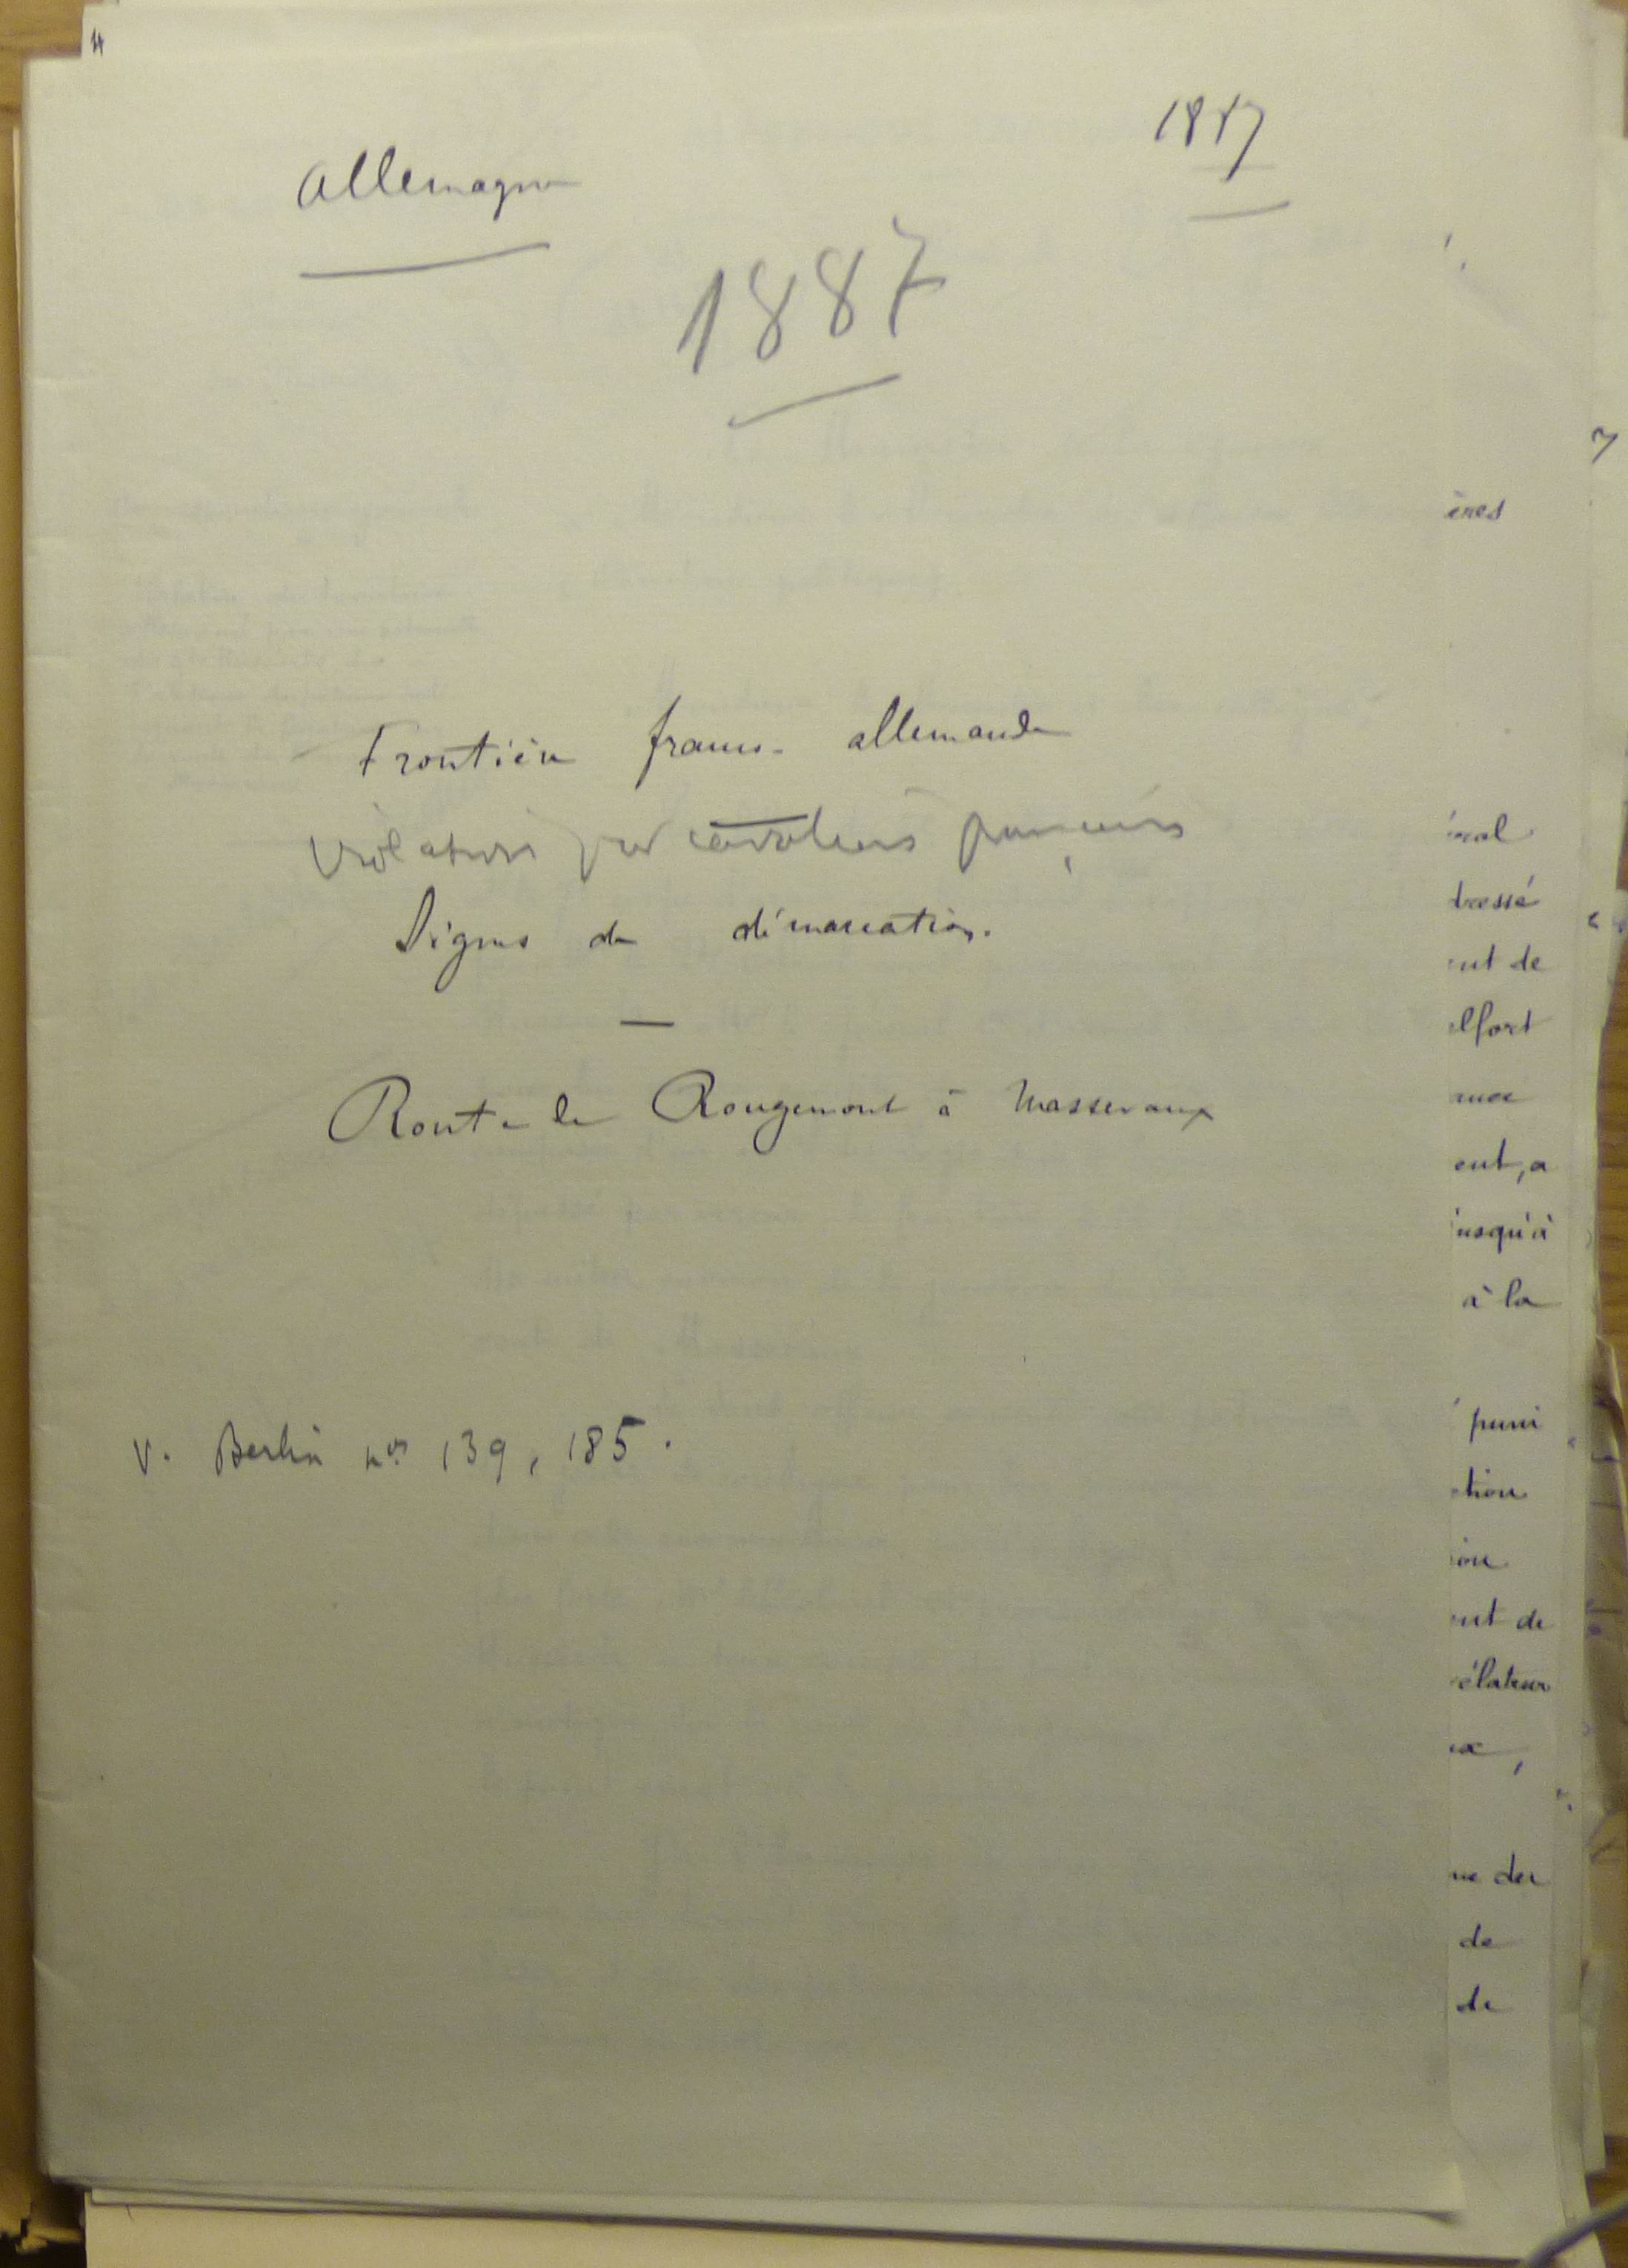 Allemagne
1887
1887
Frontière franco-allemande
Violation par cavaliers français
Signes de démarcation.
—
Route de Rougemont à Massevaux
V. Berlin nos 139, 185.
ères
éral
dressé
ent de
elfort
ent, a
jusqu'à
à la
puni
ction
ion
ent de
élateur
ux,
ue des
de
de